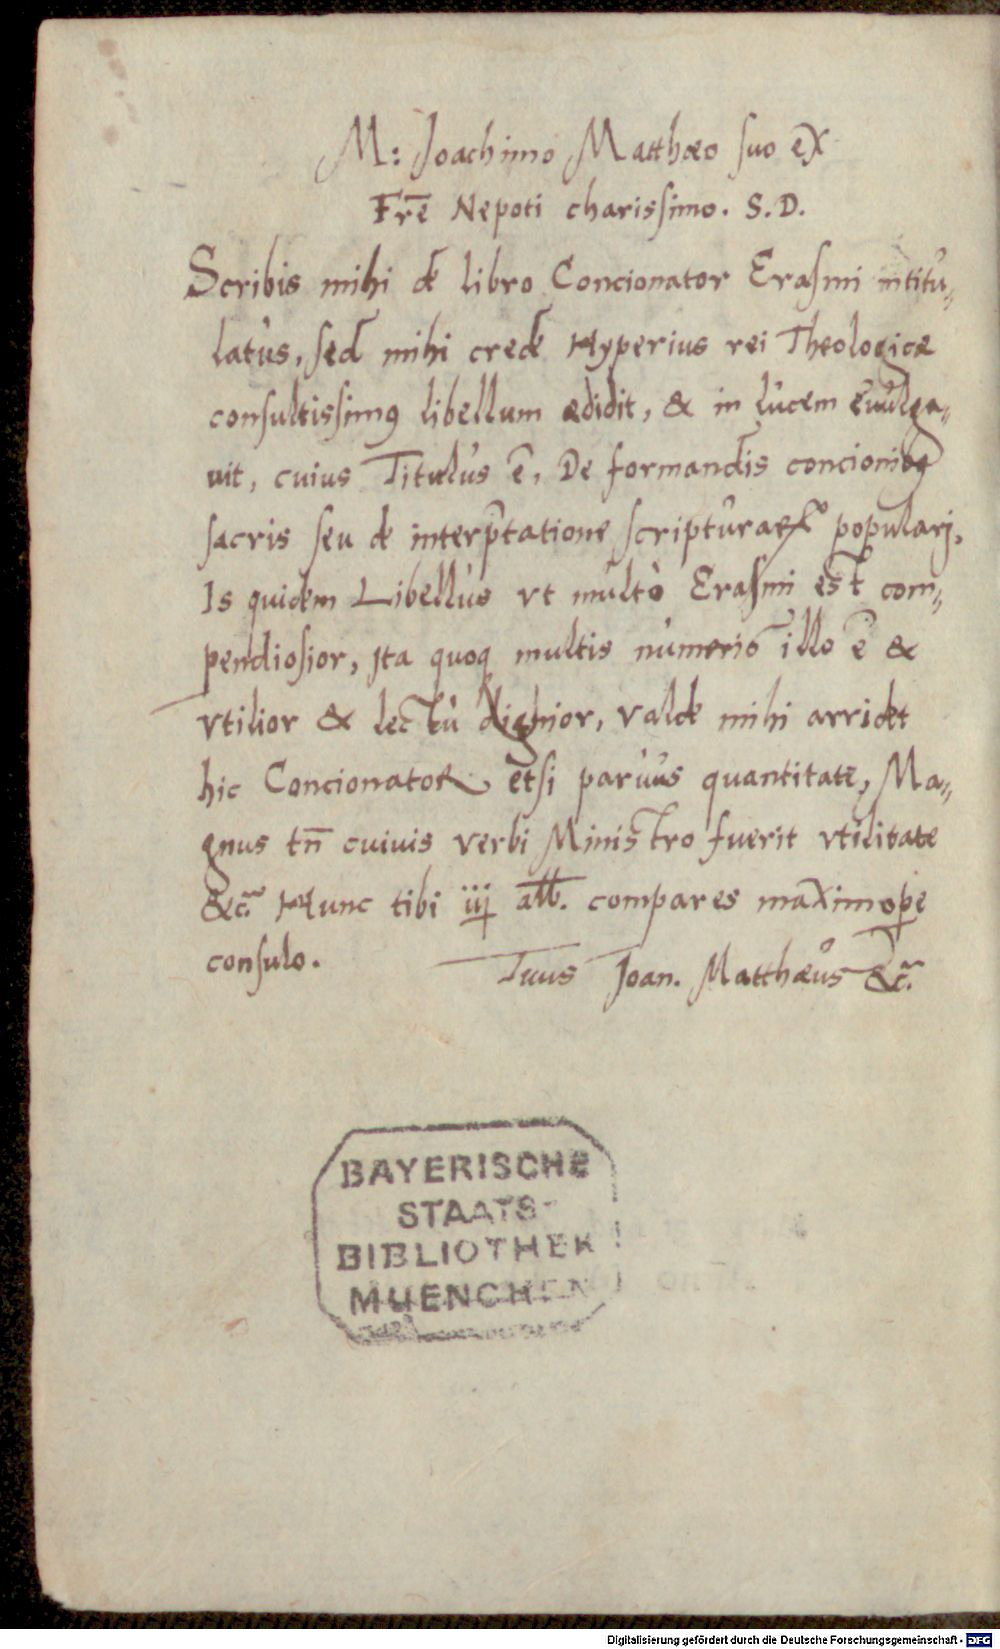 M: Joachimo Matthæo suo ex
Frē Nepoti charissimo. S.D.
Scribis mihi de libro Concionator Erasmi intitu-
latus, sed mihi crede Hyperius rei Theologicæ
consultissimꝰ libellum ædidit, & in lucem euulga-
uit, cuius Titulus ē, De formandis concionibꝰ
sacris seu de interp̄tatione scripturaꝝ populari.
Is quidem Libellus vt multò Erasmi est com-
pendiosior, Ita quoqꝫ multis numeris illo ē &
vtilior & lectu dignior, valde mihi arridet
hic Concionator etsi paruus quantitate, Ma-
gnus tn̄ cuiuis verbi Ministro fuerit vtilitate
&c. Hunc tibi iiij alb. compares maximoꝑe
consulo.
Tuus Joan. Matthæus &c.
BAYERISCHE
STAATS-
BIBLIOTHEK
MUENCHEN
Digitalisierung gefördert durch die Deutsche Forschungsgemeinschaft - DFG